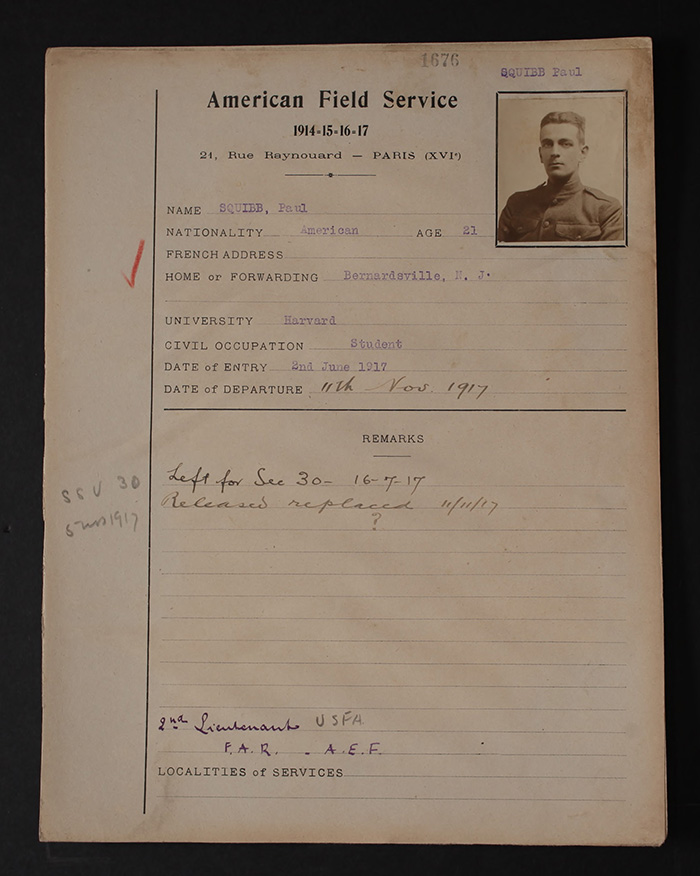 1676
SQUIBB Paul
American Field Service
1914-15-16-17
21, Rue Raynouard — PARIS (XVIe)
NAME SQUIBB, Paul
NATIONALITY American AGE 21
FRENCH ADDRESS
HOME or FORWARDING Bernardsville, N. J.
UNIVERSITY Harvard
CIVIL OCCUPATION Student
DATE of ENTRY 2nd June 1917
DATE of DEPARTURE 11th Nov. 1917
REMARKS
Left for Sec 30 - 16-7-17
SSU 30
Released replaced 11/11/17
?
1917
2nd Lieutenant USFA
F.A.R. - A.E.F.
LOCALITIES of SERVICES